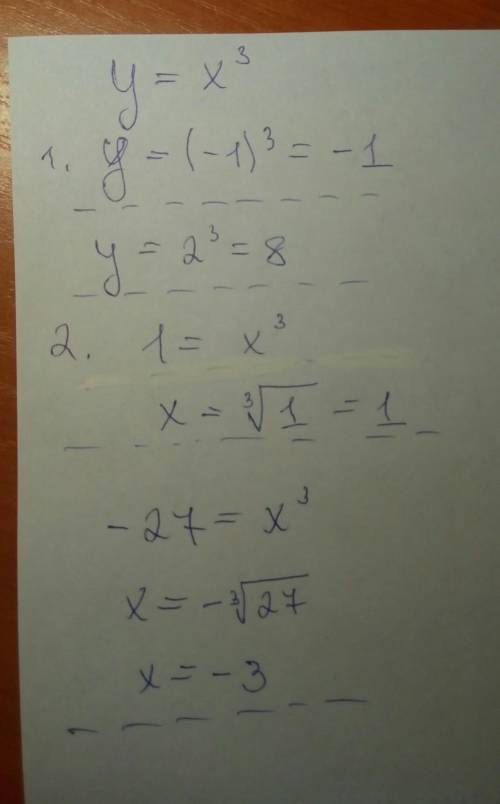 y = x³
1. y = (-1)³ = -1
y = 2³ = 8
2. 1 = x³
x = ∛1 = 1
-27 = x³
x = -∛27
x = -3